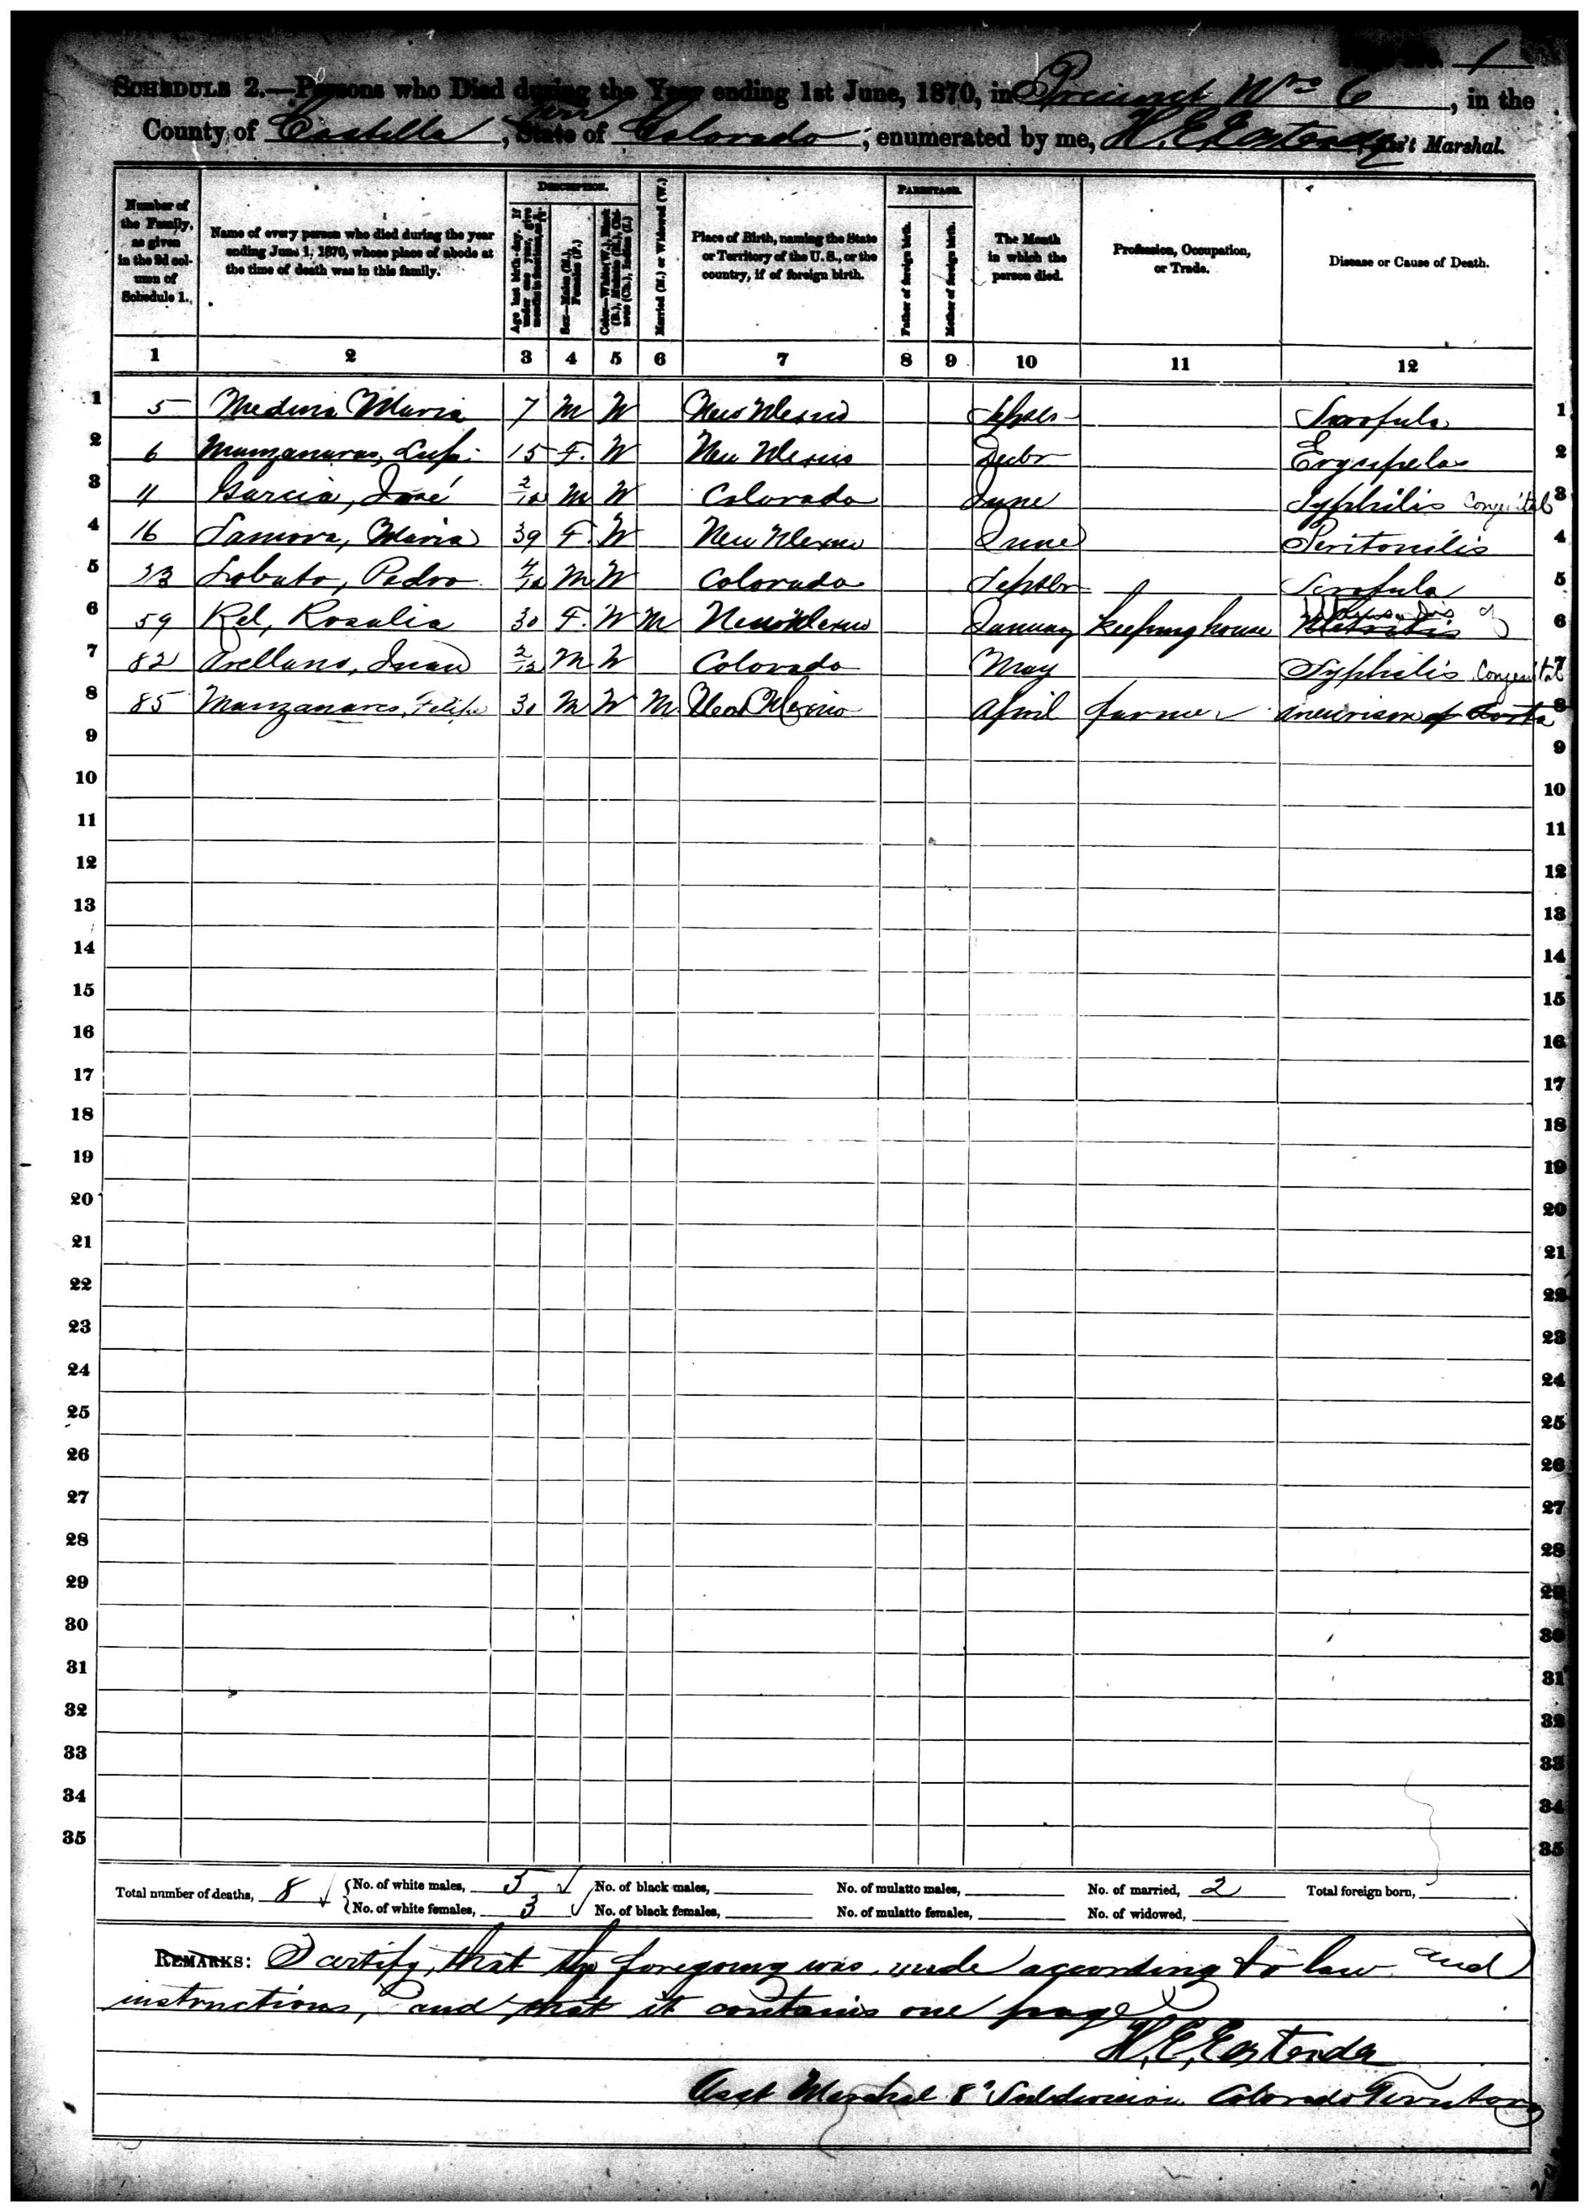 1
SCHEDULE 2.—Persons who Died during the Year ending 1st June, 1870, in Precinct No 6, in the
County of Costilla, Terr State of Colorado, enumerated by me, H. E. Easterday, Ass't Marshal.
Number of the Family, as given in the 2d column of Schedule 1.
Name of every person who died during the year ending June 1, 1870, whose place of abode at the time of death was in this family.
DESCRIPTION.
Age last birth-day. If under one year, give months in fractions, as
Sex—Males (M.), Females (F.)
Color—White (W.), Black (B.), Mulatto (M.), Chinese (Ch.), Indian (I.)
Married (M.) or Widowed (W.)
Place of Birth, naming the State or Territory of the U. S., or the country, if of foreign birth.
PARENTAGE.
Father of foreign birth.
Mother of foreign birth.
The Month in which the person died.
Profession, Occupation, or Trade.
Disease or Cause of Death.
1 2 3 4 5 6 7 8 9 10 11 12
1 5 Medina Maria 7 M W New Mexico Scrofula 1
2 6 Manzanares, 15 F. W New Mexico Erysipelas 2
3 11 Garcia, José 2/12 M W Colorado June Syphilis Congenital 3
4 16 Maria 39 F. W New Mexico June Peritonitis 4
5 33 Lobato, Pedro 4/12 M W Colorado Septbr Scrofula 5
6 59 Rel, Rosalia 30 F. W M New Mexico January Keeping house 6
7 82 Arellano, Juan 2/12 M W Colorado May Syphilis Congenital 7
8 85 Manzanares, Felipe 30 M W M New Mexico April farmer aneurism of Aorta 8
9 9
10 10
11 11
12 12
13 13
14 14
15 15
16 16
17 17
18 18
19 19
20 20
21 21
22 22
23 23
24 24
25 25
26 26
27 27
28 28
29 29
30 30
31 31
32 32
33 33
34 34
35 35
Total number of deaths, 8 No. of white males, 5 No. of black males, No. of mulatto males, No. of married, 2 Total foreign born,
No. of white females, 3 No. of black females, No. of mulatto females, No. of widowed,
REMARKS: I certify, that the foregoing was made according to law and
instructions, and that it contains one page
H. E. Easterday
Asst Marshal 8° Subdivision Colorado Territory